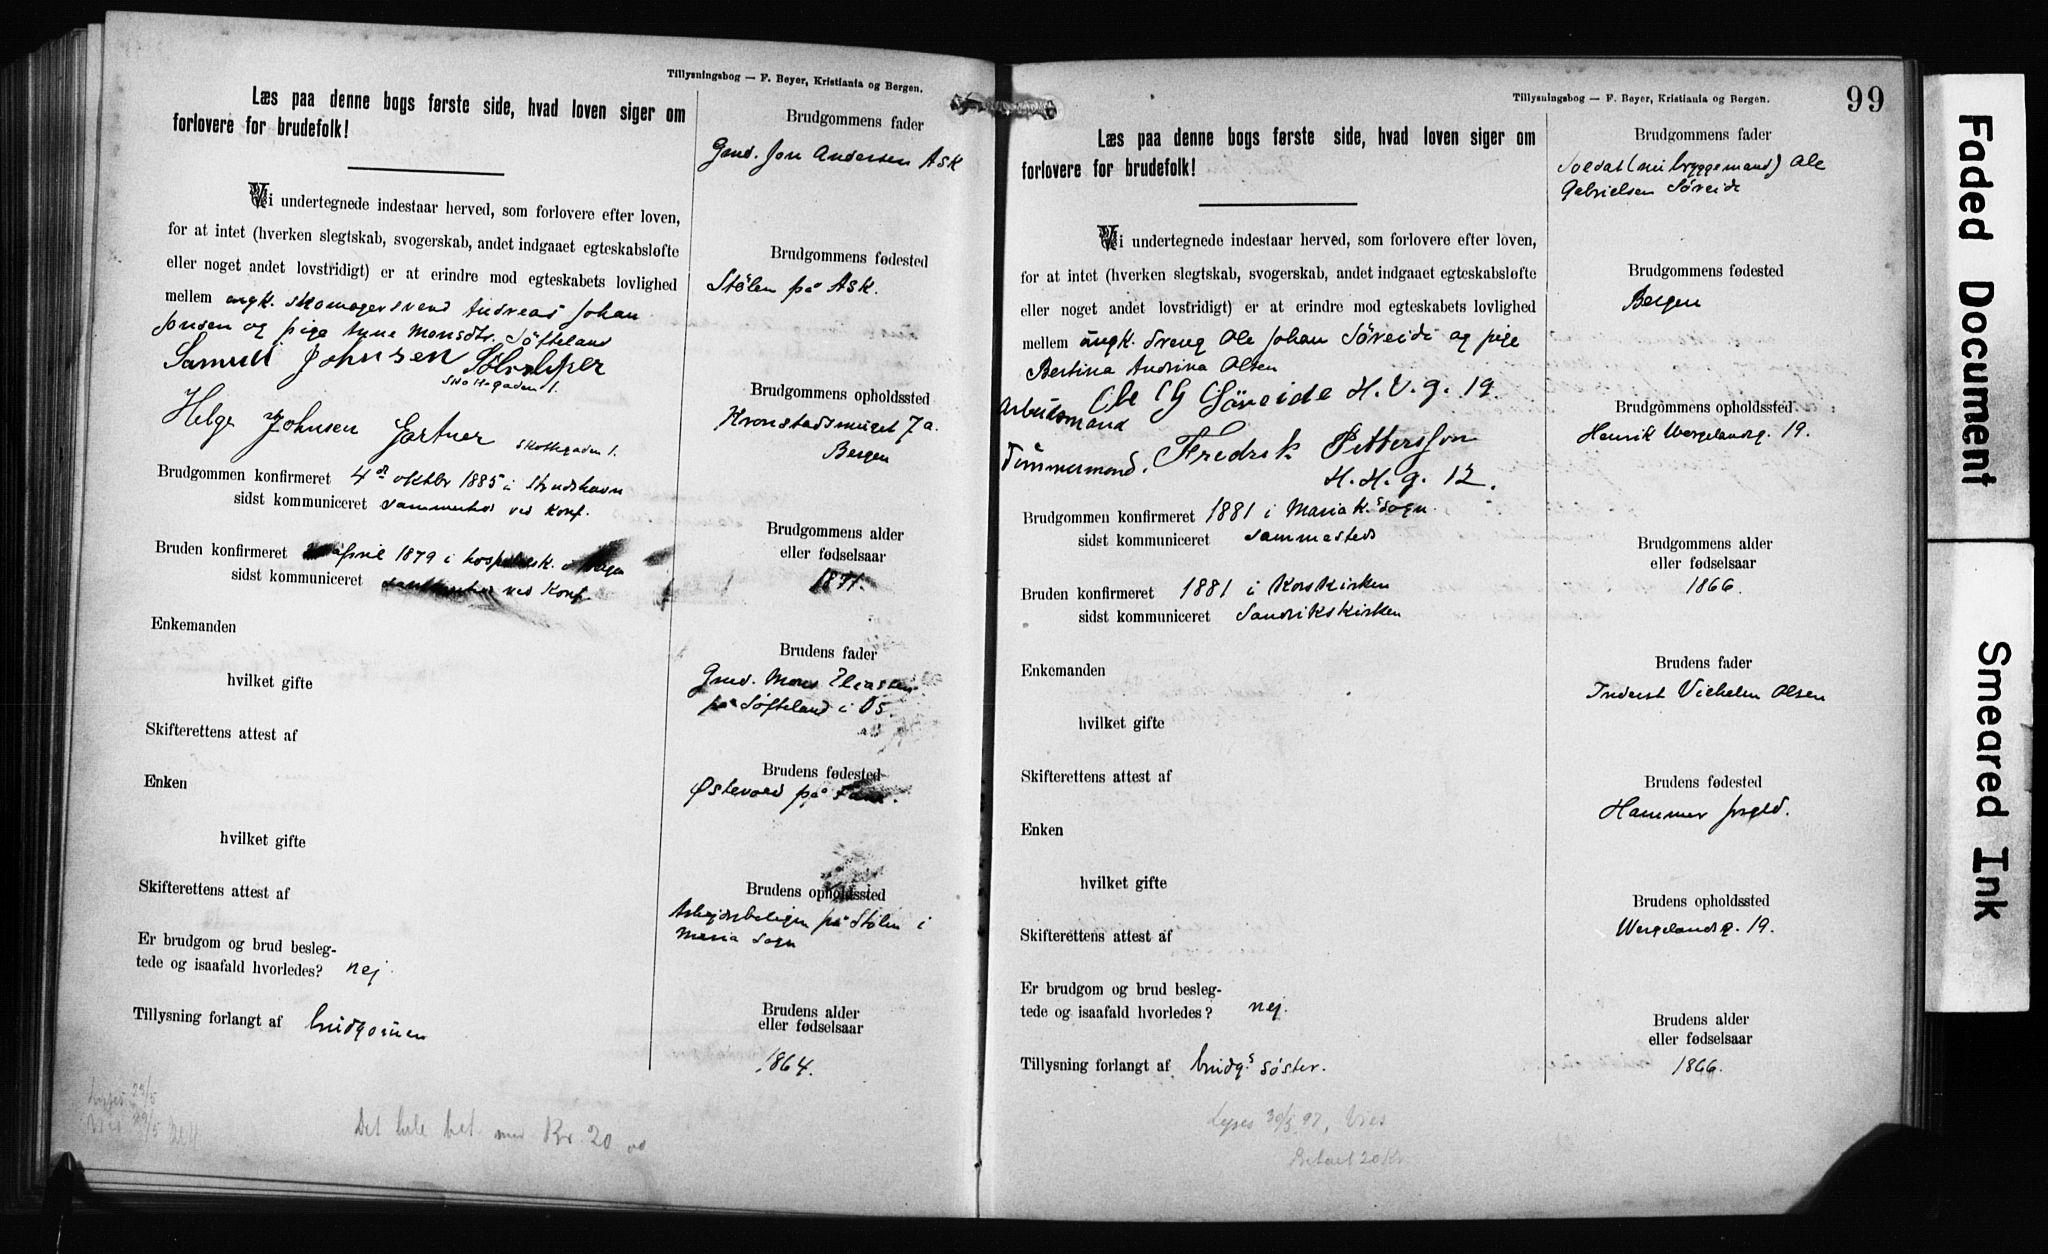 Tillysningsbog — F. Beyer, Kristiania og Bergen.
Læs paa denne bogs første side, hvad loven siger om
forlovere for brudefolk!
Vi undertegnede indestaar herved, som forlovere efter loven,
for at intet (hverken slegtskab, svogerskab, andet indgaaet egteskabsløfte
eller noget andet lovstridigt) er at erindre mod egteskabets lovlighed
mellem ungk. skomagersvend Andreas Johan
Jonsen og pige Anne Monsdtr. Søfteland
Samuel Johnsen
Skottegaden 1.
Helge Johnsen Gartner Skottegaden 1.
Brudgommen konfirmeret 4de oktbr 1885 i Strudshavn
sidst kommuniceret sammesteds ved Konf.
Bruden konfirmeret april 1879 i hospitalsk. i Bergen
sidst kommuniceret sammesteds ved Konf.
Enkemanden
hvilket gifte
Skifterettens attest af
Enken
hvilket gifte
Skifterettens attest af
Er brudgom og brud besleg-
tede og isaafald hvorledes? nej.
Tillysning forlangt af brudgommen
Brudgommens fader
Gmd. Jon Andersen Ask
Brudgommens fødested
Stølen på Ask.
Brudgommens opholdssted
Kronstadsmuget 7a.
Bergen
Brudgommens alder
eller fødselsaar
1871.
Brudens fader
Gmd. Mons Eliassen
på Søfteland i Os.
Brudens fødested
Østevold på
Brudens opholdssted
Arbejderbolign på Stølen i
Maria Sogn
Brudens alder
eller fødselsaar
1864.
Lyses 23/5
Det hele bet. med Kr. 20.00
Tillysningsbog — F. Beyer, Kristiania og Bergen.
99
Læs paa denne bogs første side, hvad loven siger om
forlovere for brudefolk!
Vi undertegnede indestaar herved, som forlovere efter loven,
for at intet (hverken slegtskab, svogerskab, andet indgaaet egteskabsløfte
eller noget andet lovstridigt) er at erindre mod egteskabets lovlighed
mellem ungk. dreng Ole Johan Søreide og pige
Bertina Andrina Olsen
Arbeidsmand Ole G Søreide H. V. g. 19.
Tømmermand. Fredrik Pettersson
H. H. g. 12.
Brudgommen konfirmeret 1881 i Mariak.s sogn.
sidst kommuniceret sammesteds
Bruden konfirmeret 1881 i Korskirken
sidst kommuniceret Sandvikskirken
Enkemanden
hvilket gifte
Skifterettens attest af
Enken
hvilket gifte
Skifterettens attest af
Er brudgom og brud besleg-
tede og isaafald hvorledes? nej.
Tillysning forlangt af brudg.s søster.
Brudgommens fader
Soldat (nu bryggemand) Ole
Gabrielsen Søreide
Brudgommens fødested
Bergen
Brudgommens opholdssted.
Henrik Wergelandsg. 19.
Brudgommens alder
eller fødselsaar
1866.
Brudens fader
Inderst Vilhelm Olsen
Brudens fødested
Hammer prgld.
Brudens opholdssted
Wergelandsg. 19.
Brudens alder
eller fødselsaar
1866.
Lyses 30/5 97, Vies
Betalt 20 Kr
Faded Document
Smeared Ink